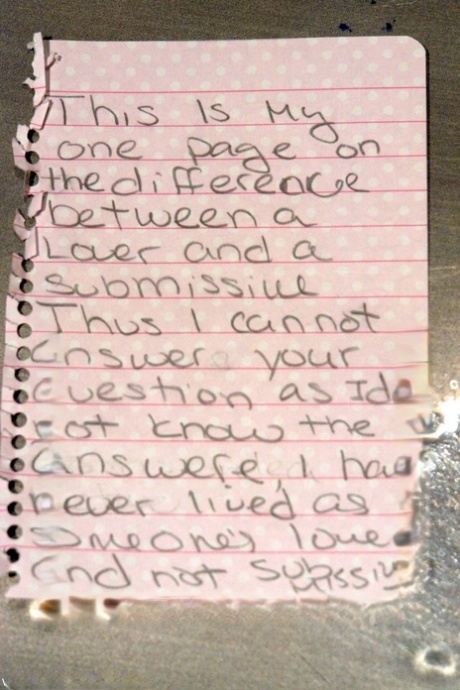 This Is My
one page on
the difference
between a
Lover and a
submissive
Thus I cannot
answer your
question as I do
not know the
answere, I had
never lived as
Someone's lover
and not submissive